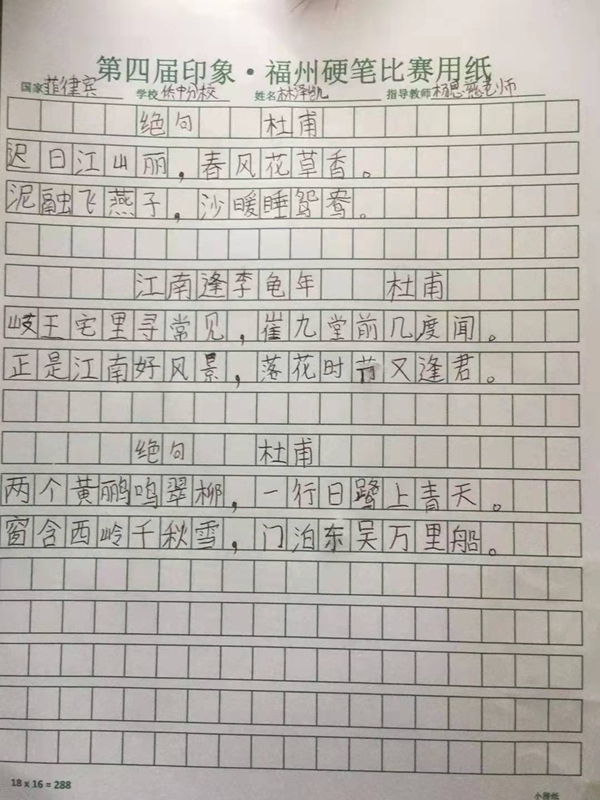 第四届印象·福州硬笔比赛用纸
国家 菲律宾 学校 侨中分校 姓名 林泽凯 指导教师 杨恩慈老师
绝句 杜甫
迟日江山丽，春风花草香。
泥融飞燕子，沙暖睡鸳鸯。
江南逢李龟年 杜甫
岐王宅里寻常见，崔九堂前几度闻。
正是江南好风景，落花时节又逢君。
绝句 杜甫
两个黄鹂鸣翠柳，一行日鹭上青天。
窗含西岭千秋雪，门泊东吴万里船。
18 x 16 = 288